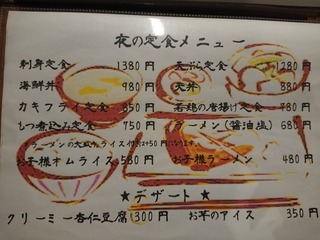 夜の定食メニュー
刺身定食 1380円
天ぷら定食 1280円
海鮮丼 980円
天丼 880円
カキフライ定食 850円
若鶏の唐揚げ定食 780円
もつ煮込み定食 750円
ラーメン(醤油塩) 680円
ラーメンの大盛り、ライス付は+50円になります。
お子様オムライス 580円
お子様ラーメン 480円
★デザート★
クリーミー杏仁豆腐 300円
お芋のアイス 350円